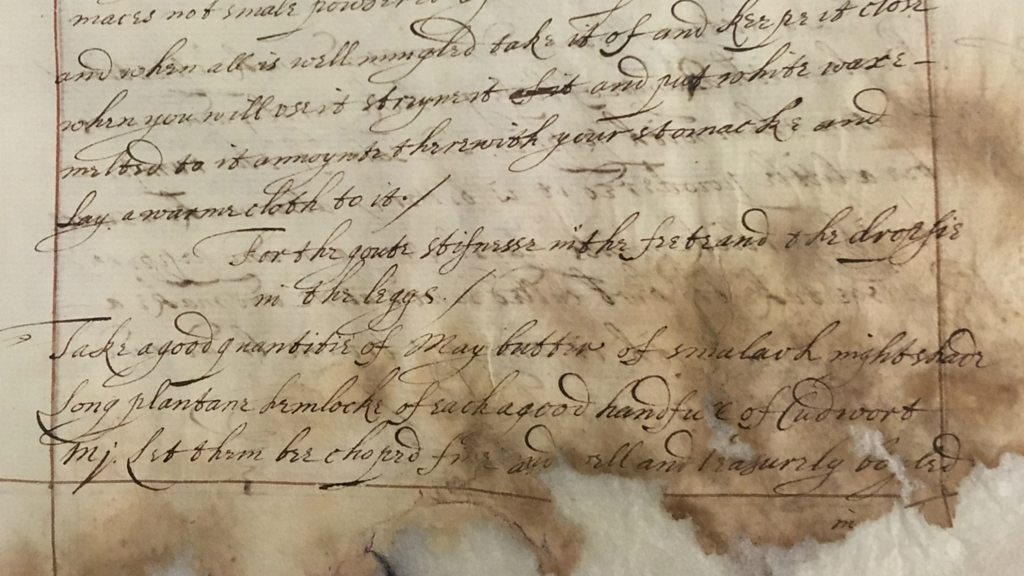 maces not smale powdered
and when all is well mingled take it of and keepe it close
when you will use it streyne it and put white waxe
melted to it annoynte therewith your stomacke and
Lay a warme cloth to it. /
For the goute stifnesse in the feete and the dropsie
in the leggs. /
Take a good quantitie of May butter of smalach nightshade
Long plantane hemlocke of each a good handfull of Cudwort
Mj. Let them bee choped fine and well and leasurely boyled
in